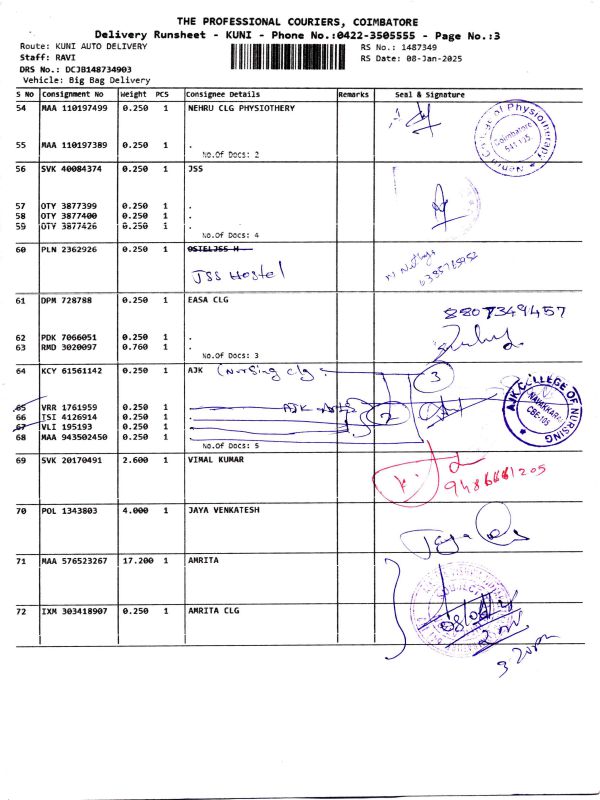 THE PROFESSIONAL COURIERS, COIMBATORE
Delivery Runsheet - KUNI - Phone No.:0422-3505555 - Page No.:3
Route: KUNI AUTO DELIVERY
RS No.: 1487349
Staff: RAVI
RS Date: 08-Jan-2025
DRS No.: DCJB148734903
Vehicle: Big Bag Delivery
S No Consignment No Weight PCS Consignee Details Remarks Seal & Signature
54 MAA 110197499 0.250 1 NEHRU CLG PHYSIOTHERY
Nehru College of Physiotherapy
Coimbatore
641 105
55 MAA 110197389 0.250 1 .
No.Of Docs: 2
56 SVK 40084374 0.250 1 JSS
57 OTY 3877399 0.250 1 .
58 OTY 3877400 0.250 1 .
59 OTY 3877426 0.250 1 .
No.Of Docs: 4
60 PLN 2362926 0.250 1 OSTELJSS H
JSS Hostel
61 DPM 728788 0.250 1 EASA CLG
8807349457
62 PDK 7066051 0.250 1 .
63 RMD 3020097 0.760 1 .
No.Of Docs: 3
64 KCY 61561142 0.250 1 AJK (Nursing clg.
3
AJK COLLEGE OF NURSING
NAVAKKARAI
CBE-105
65 VRR 1761959 0.250 1
2
66 ISI 4126914 0.250 1
67 VLI 195193 0.250 1
68 MAA 943502450 0.250 1
No.Of Docs: 5
69 SVK 20170491 2.600 1 VIMAL KUMAR
9486661205
70 POL 1343803 4.000 1 JAYA VENKATESH
71 MAA 576523267 17.200 1 AMRITA
72 IXM 303418907 0.250 1 AMRITA CLG
3 20pm